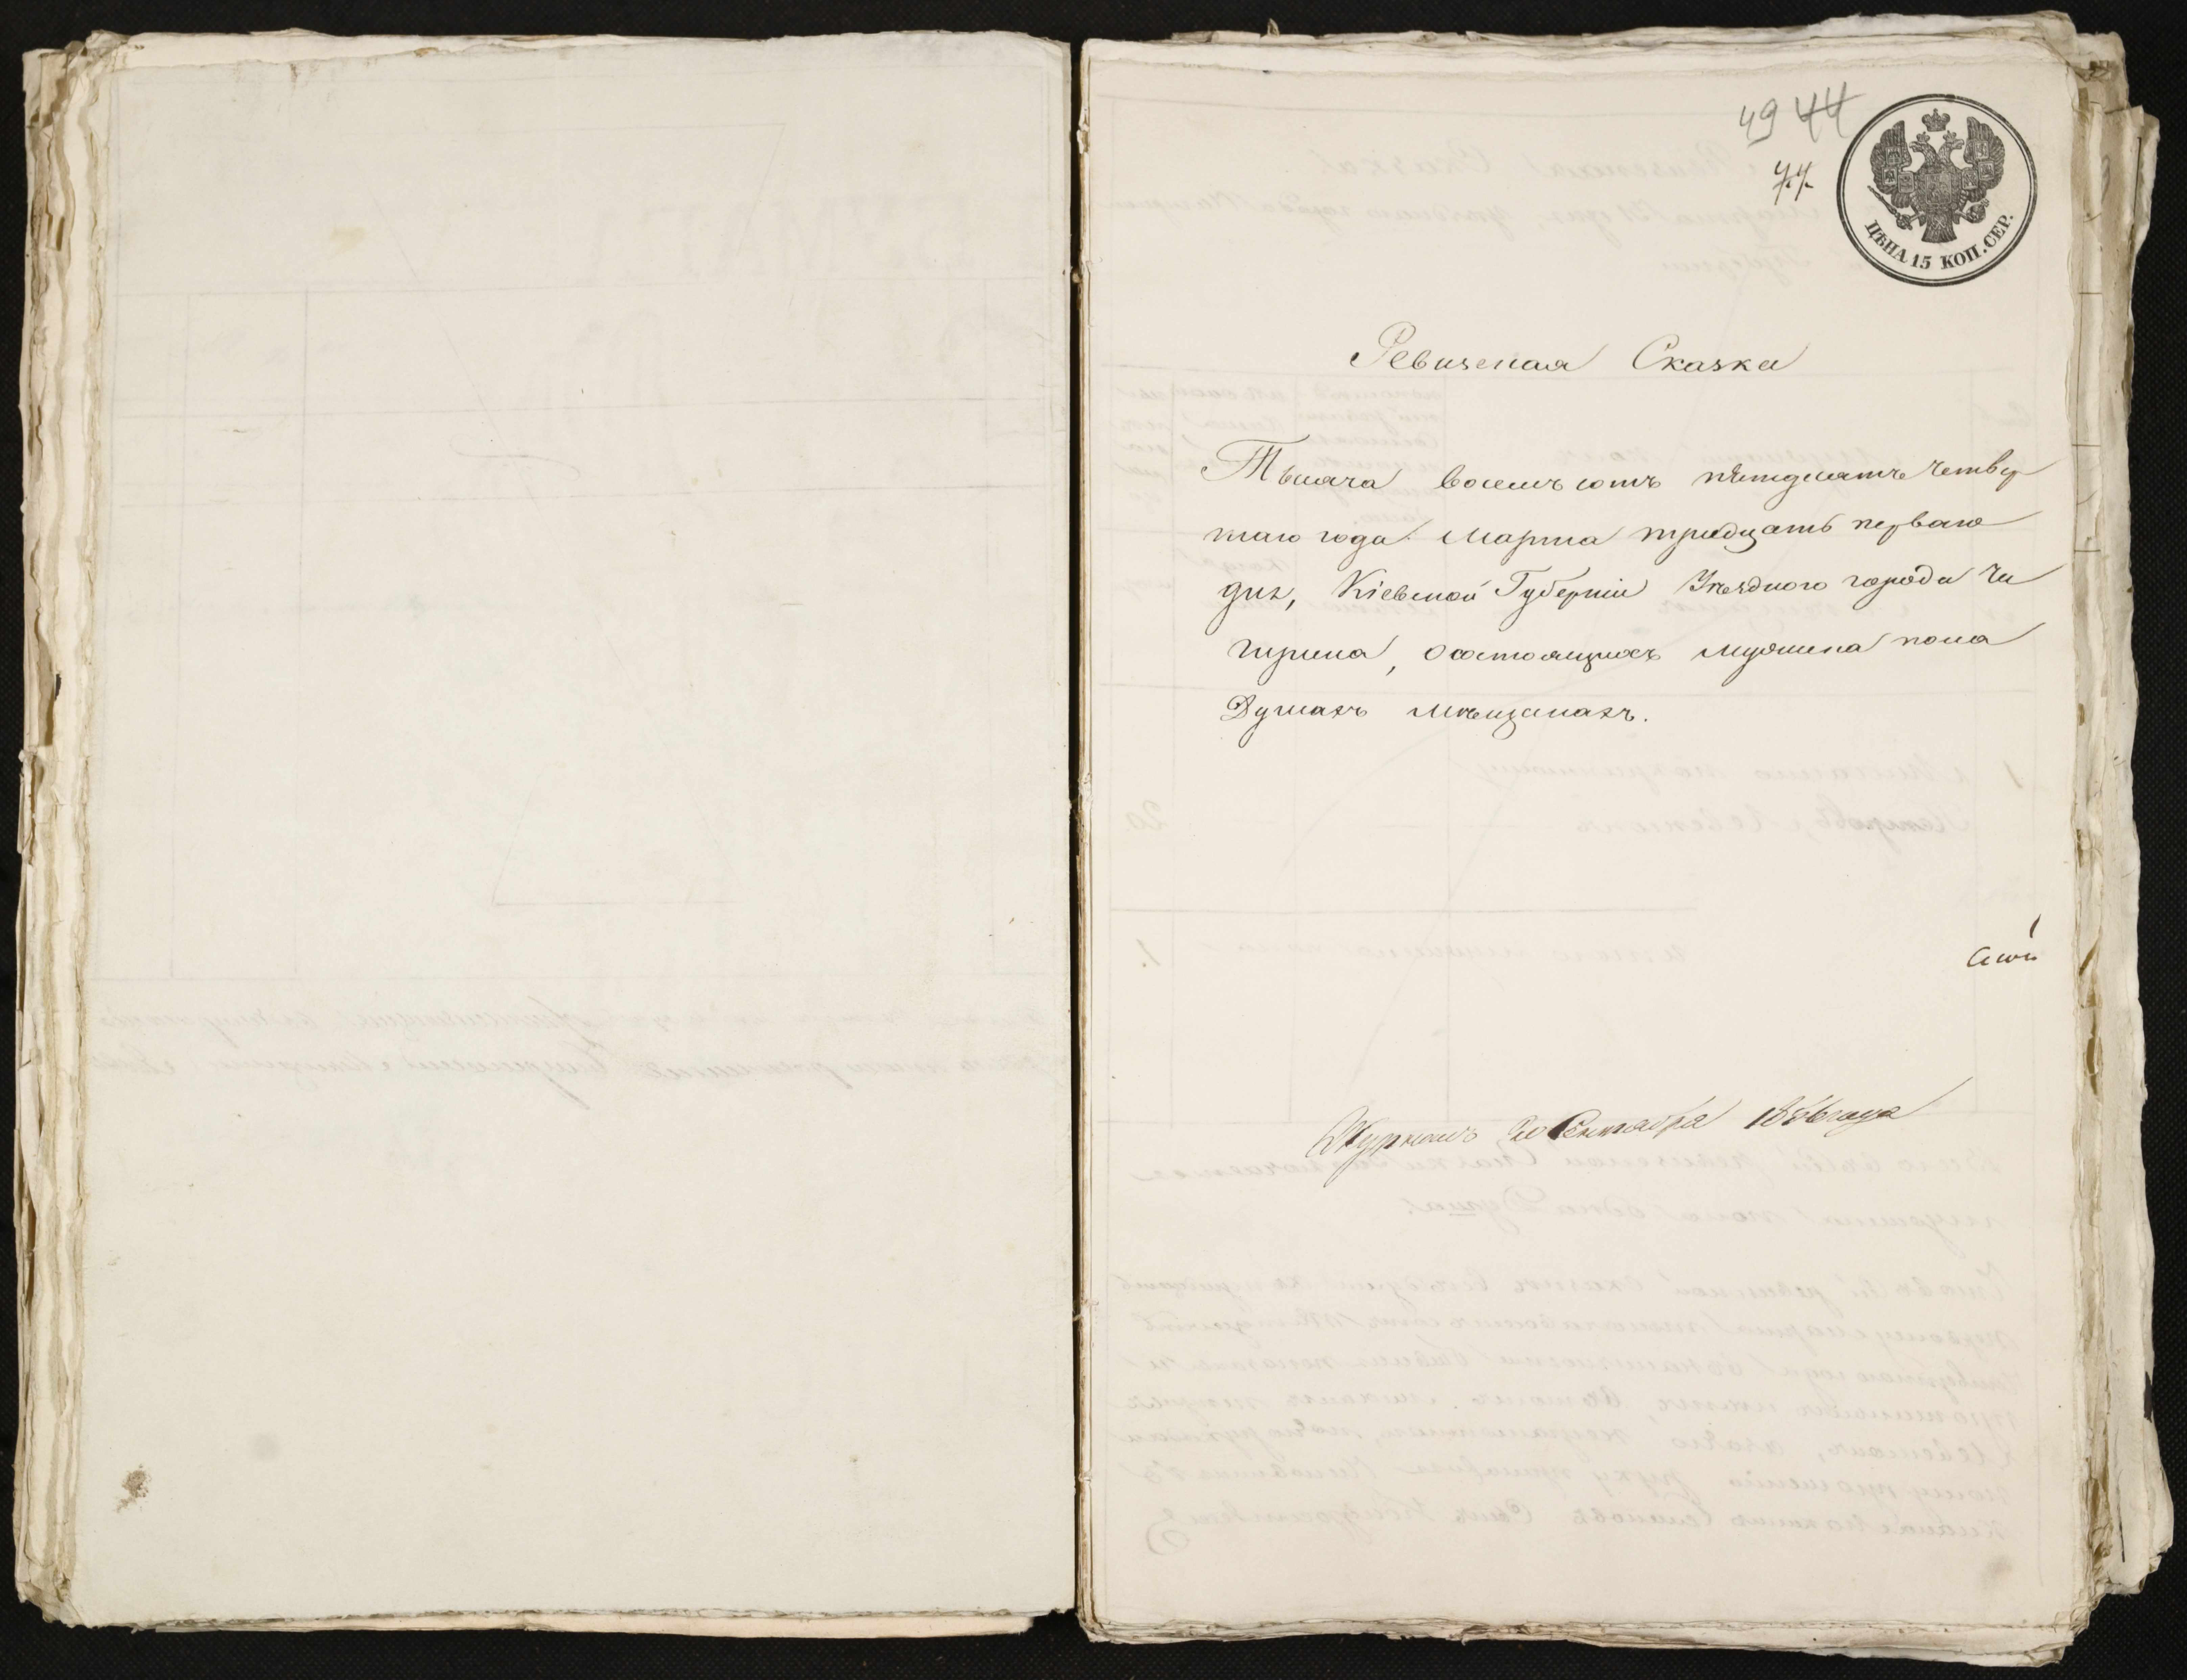 49 44
44.
ЦѢНА 15 КОП. СЕР.
Ревизская Сказка
Тысяча восемъ сотъ пятдесятъ четвер
таго года Марта тридцать перваго
дня, Кіевской Губерніи Уѣзднаго города Чи
гирина, о состоящихъ мужеска пола
Душахъ мѣщанахъ.
Журналъ 20 Сентября года